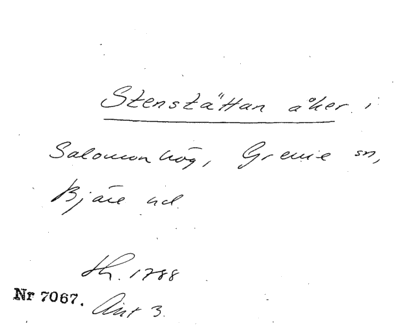 Stenstättan åker i
Salomonhög, Grevie sn,
Bjäre hd
Sk. 1788
Nr 7067.
Akt 3.